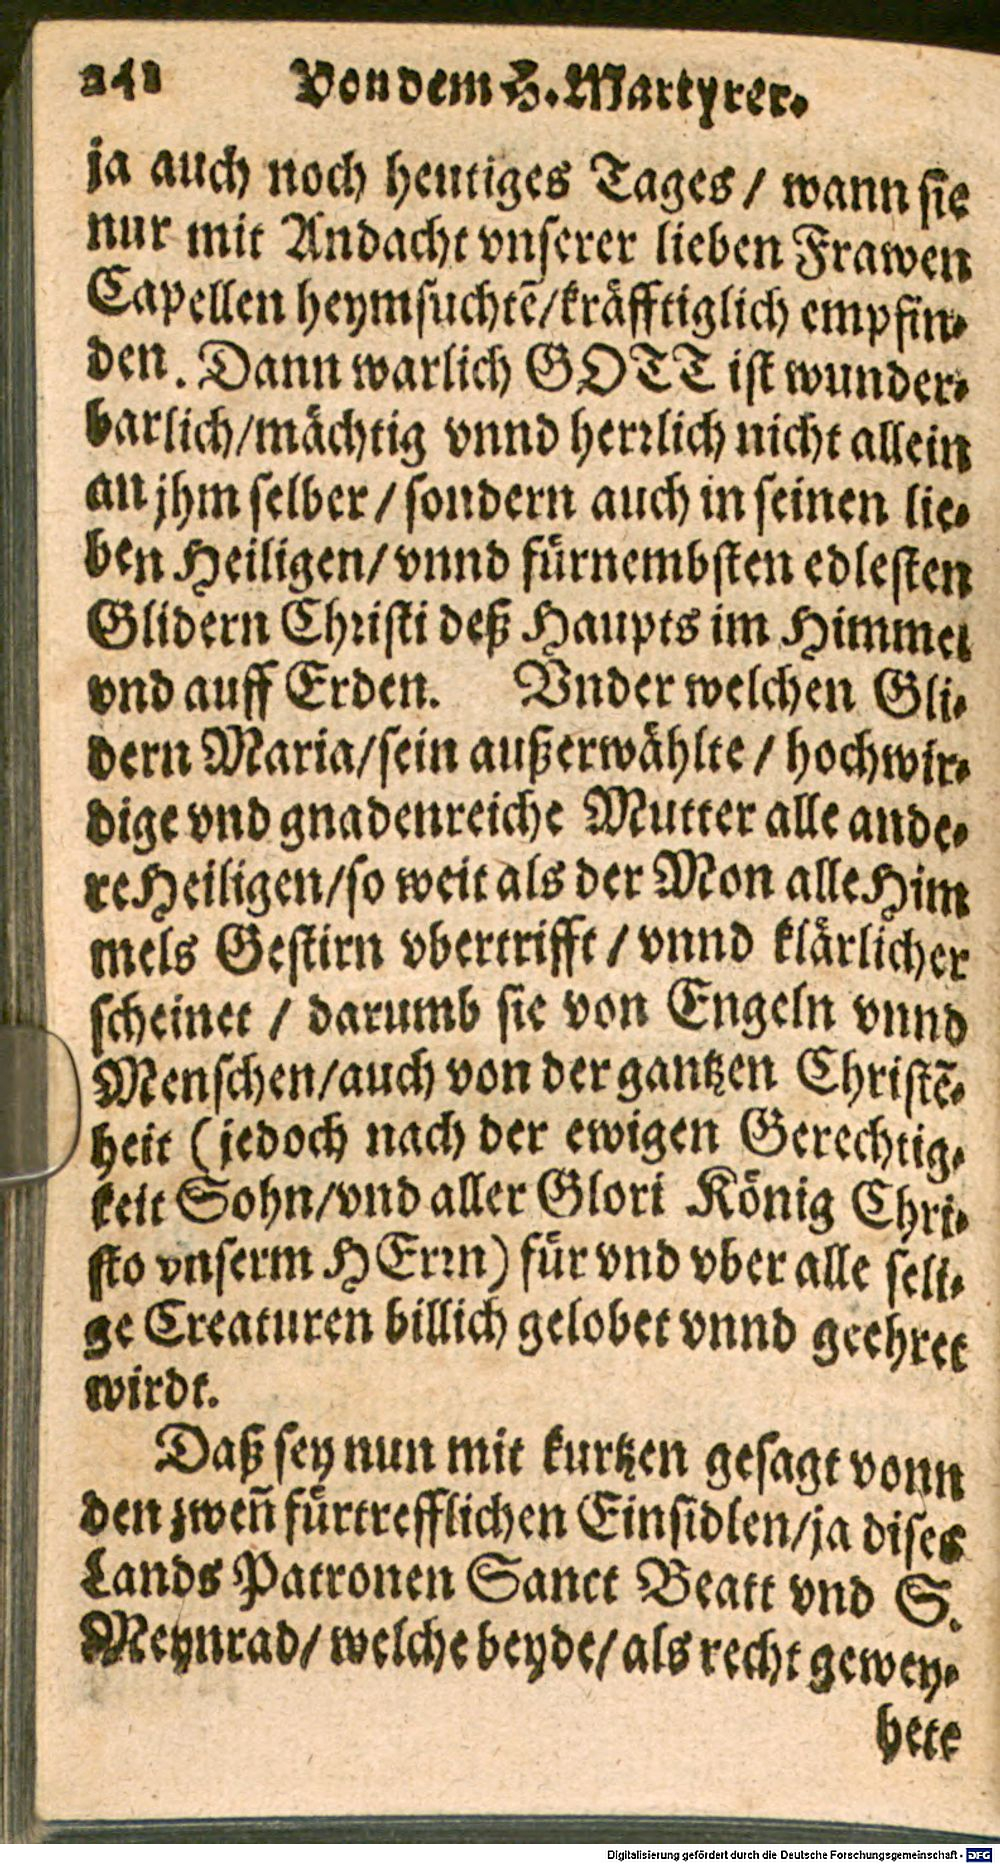 242 Von dem H. Martyrer.
ja auch noch heutiges Tages / wann sie
nur mit Andacht vnserer lieben Frawen
Capellen heymsuchtē/kräfftiglich empfin-
den. Dann warlich GOTT ist wunder-
barlich/mächtig vnnd herrlich nicht allein
an jhm selber / sondern auch in seinen lie-
ben Heiligen/ vnnd fürnembsten edlesten
Glidern Christi deß Haupts im Himmel
vnd auff Erden. Vnder welchen Gli-
dern Maria/sein außerwählte / hochwir-
dige vnd gnadenreiche Mutter alle ande-
re Heiligen/so weit als der Mon alle Him
mels Gestirn vbertrifft / vnnd klärlicher
scheinet / darumb sie von Engeln vnnd
Menschen/auch von der gantzen Christē-
heit (jedoch nach der ewigen Gerechtig-
keit Sohn/vnd aller Glori König Chri-
sto vnserm HErrn) für vnd vber alle seli-
ge Creaturen billich gelobet vnnd geehret
wirdt.
Daß sey nun mit kurtzen gesagt vonn
den zweñ fürtrefflichen Einsidlen/ja dises
Lands Patronen Sanct Beatt vnd S.
Meynrad/ welche beyde/ als recht gewey-
hete
Digitalisierung gefördert durch die Deutsche Forschungsgemeinschaft - DFG